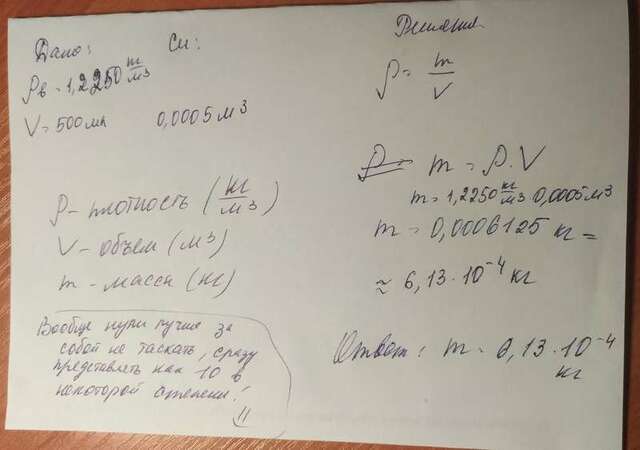 Дано:
Си:
ρв = 1,2250 m/м3
V = 500 мл
0,0005 м3
ρ - плотность (кг/м3)
V - объем (м3)
m - масса (кг)
Вообще нули лучше за
собой не таскать, сразу
представлять как 10 в
некоторой степени!
Решение
ρ = m/V
m = ρ · V
m = 1,2250 кг/м3 · 0,0005 м3
m = 0,0006125 кг =
≈ 6,13 · 10⁻⁴ кг
Ответ: m = 6,13 · 10⁻⁴
кг